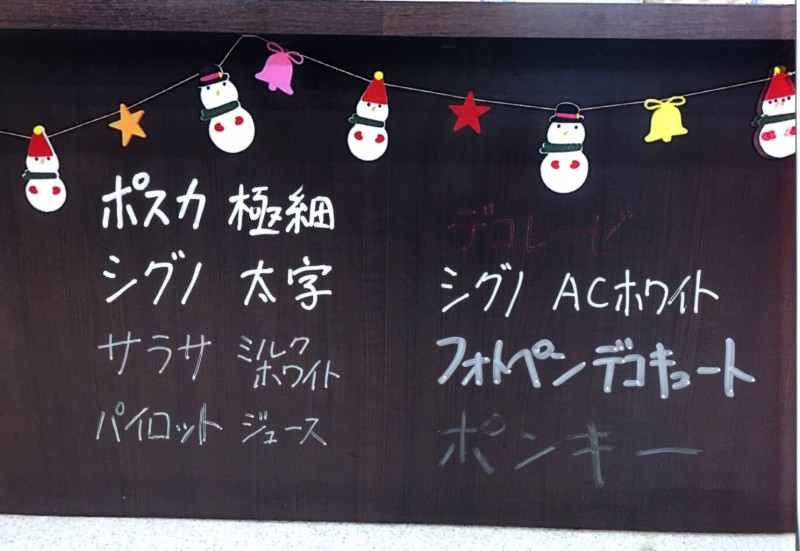 ポスカ 極細
シグノ 太字
サラサ ミルク
ホワイト
パイロット ジュース
デコレーゼ
シグノ ACホワイト
フォトペンデコキュート
ポンキー